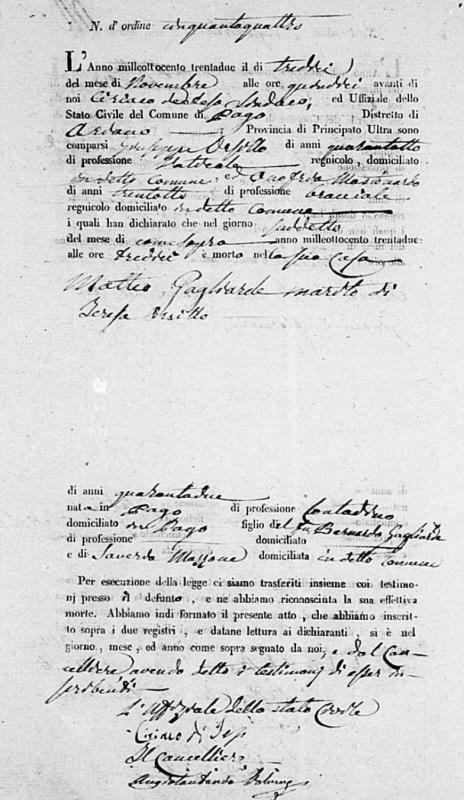 N. d'ordine cinquantaquattro
L'Anno milleottocento trentadue il di tredici
del mese di Novembre alle ore quindici avanti di
noi Ciriaco Sindaco, ed Uffiziale dello
Stato Civile del Comune di Pago Distretto di
Provincia di Principato Ultra sono
comparsi Giuseppe Urillo di anni quarantotto
di professione regnicolo, domiciliato
in detto Comune, ed
di anni trentotto di professione bracciale
regnicolo domiciliato in detto Comune
i quali han dichiarato che nel giorno suddetto
del mese di come sopra anno milleottocento trentadue
alle ore tredici è morto nella sua Casa
Matteo Gagliarde marito di
Teresa Urillo
di anni quarantadue
nato in Pago di professione Contadino
domiciliato in Pago figlio del fu Bernardo Gagliarde
di professione domiciliato
e di Saverda Mazzone domiciliata in detto Comune
Per esecuzione della legge ci siamo trasferiti insieme coi testimo-
nj presso il defunto, e ne abbiamo riconosciuta la sua effettiva
morte. Abbiamo indi formato il presente atto, che abbiamo inscrit-
to sopra i due registri, e datane lettura ai dichiaranti, si è nel
giorno, mese, ed anno come sopra segnato da noi, e dal Can-
celliere avendo detto i testimonj di esser in-
scribendi
L'uffiziale dello stato Civile
Ciriaco
Il Cancelliere